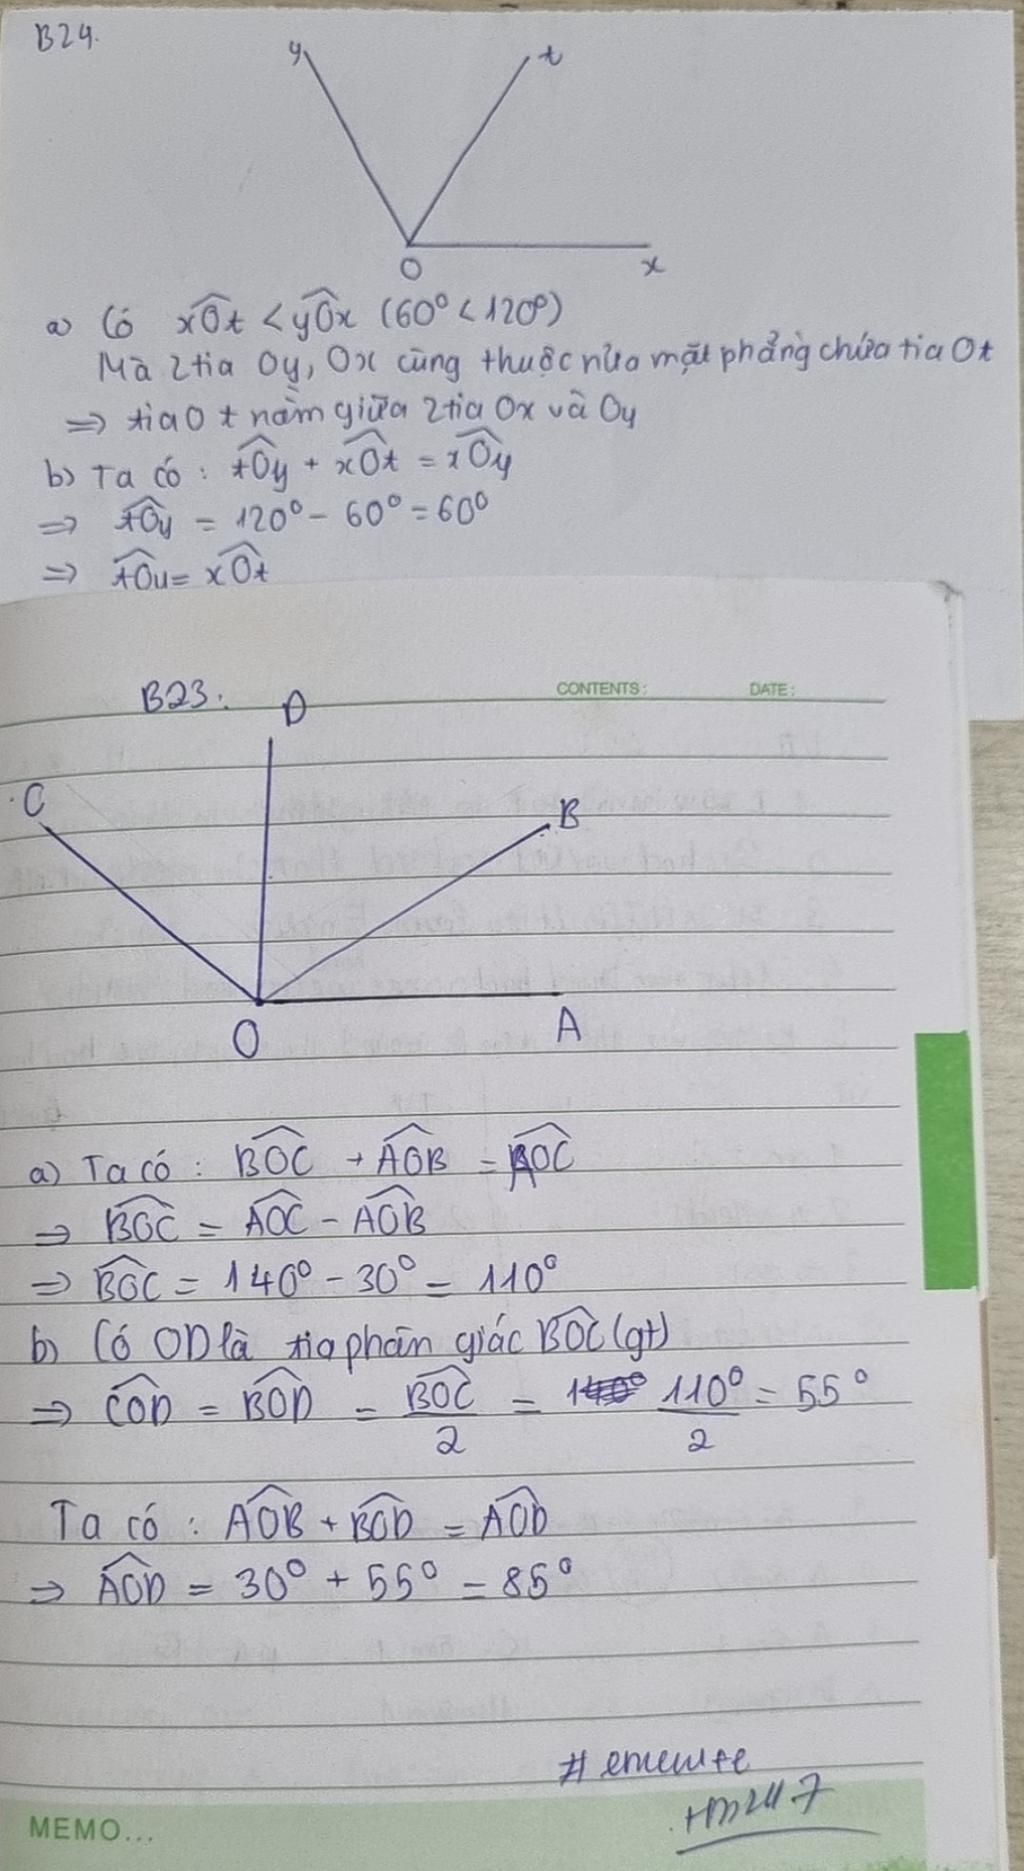 B24.
y t
O x
a) Có xÔt < yÔx (60° < 120°)
Mà 2 tia Oy, Ox cùng thuộc nửa mặt phẳng chứa tia Ot
=> tia Ot nằm giữa 2 tia Ox và Oy
b) Ta có : tÔy + xÔt = xÔy
=> tÔy = 120° - 60° = 60°
=> tÔy = xÔt
CONTENTS: DATE:
B23: D
C B
O A
a) Ta có : BÔC + AÔB = AÔC
=> BÔC = AÔC - AÔB
=> BÔC = 140° - 30° = 110°
b) Có OD là tia phân giác BÔC (gt)
=> CÔD = BÔD = BÔC/2 = 110°/2 = 55°
Ta có : AÔB + BÔD = AÔD
=> AÔD = 30° + 55° = 85°
MEMO...